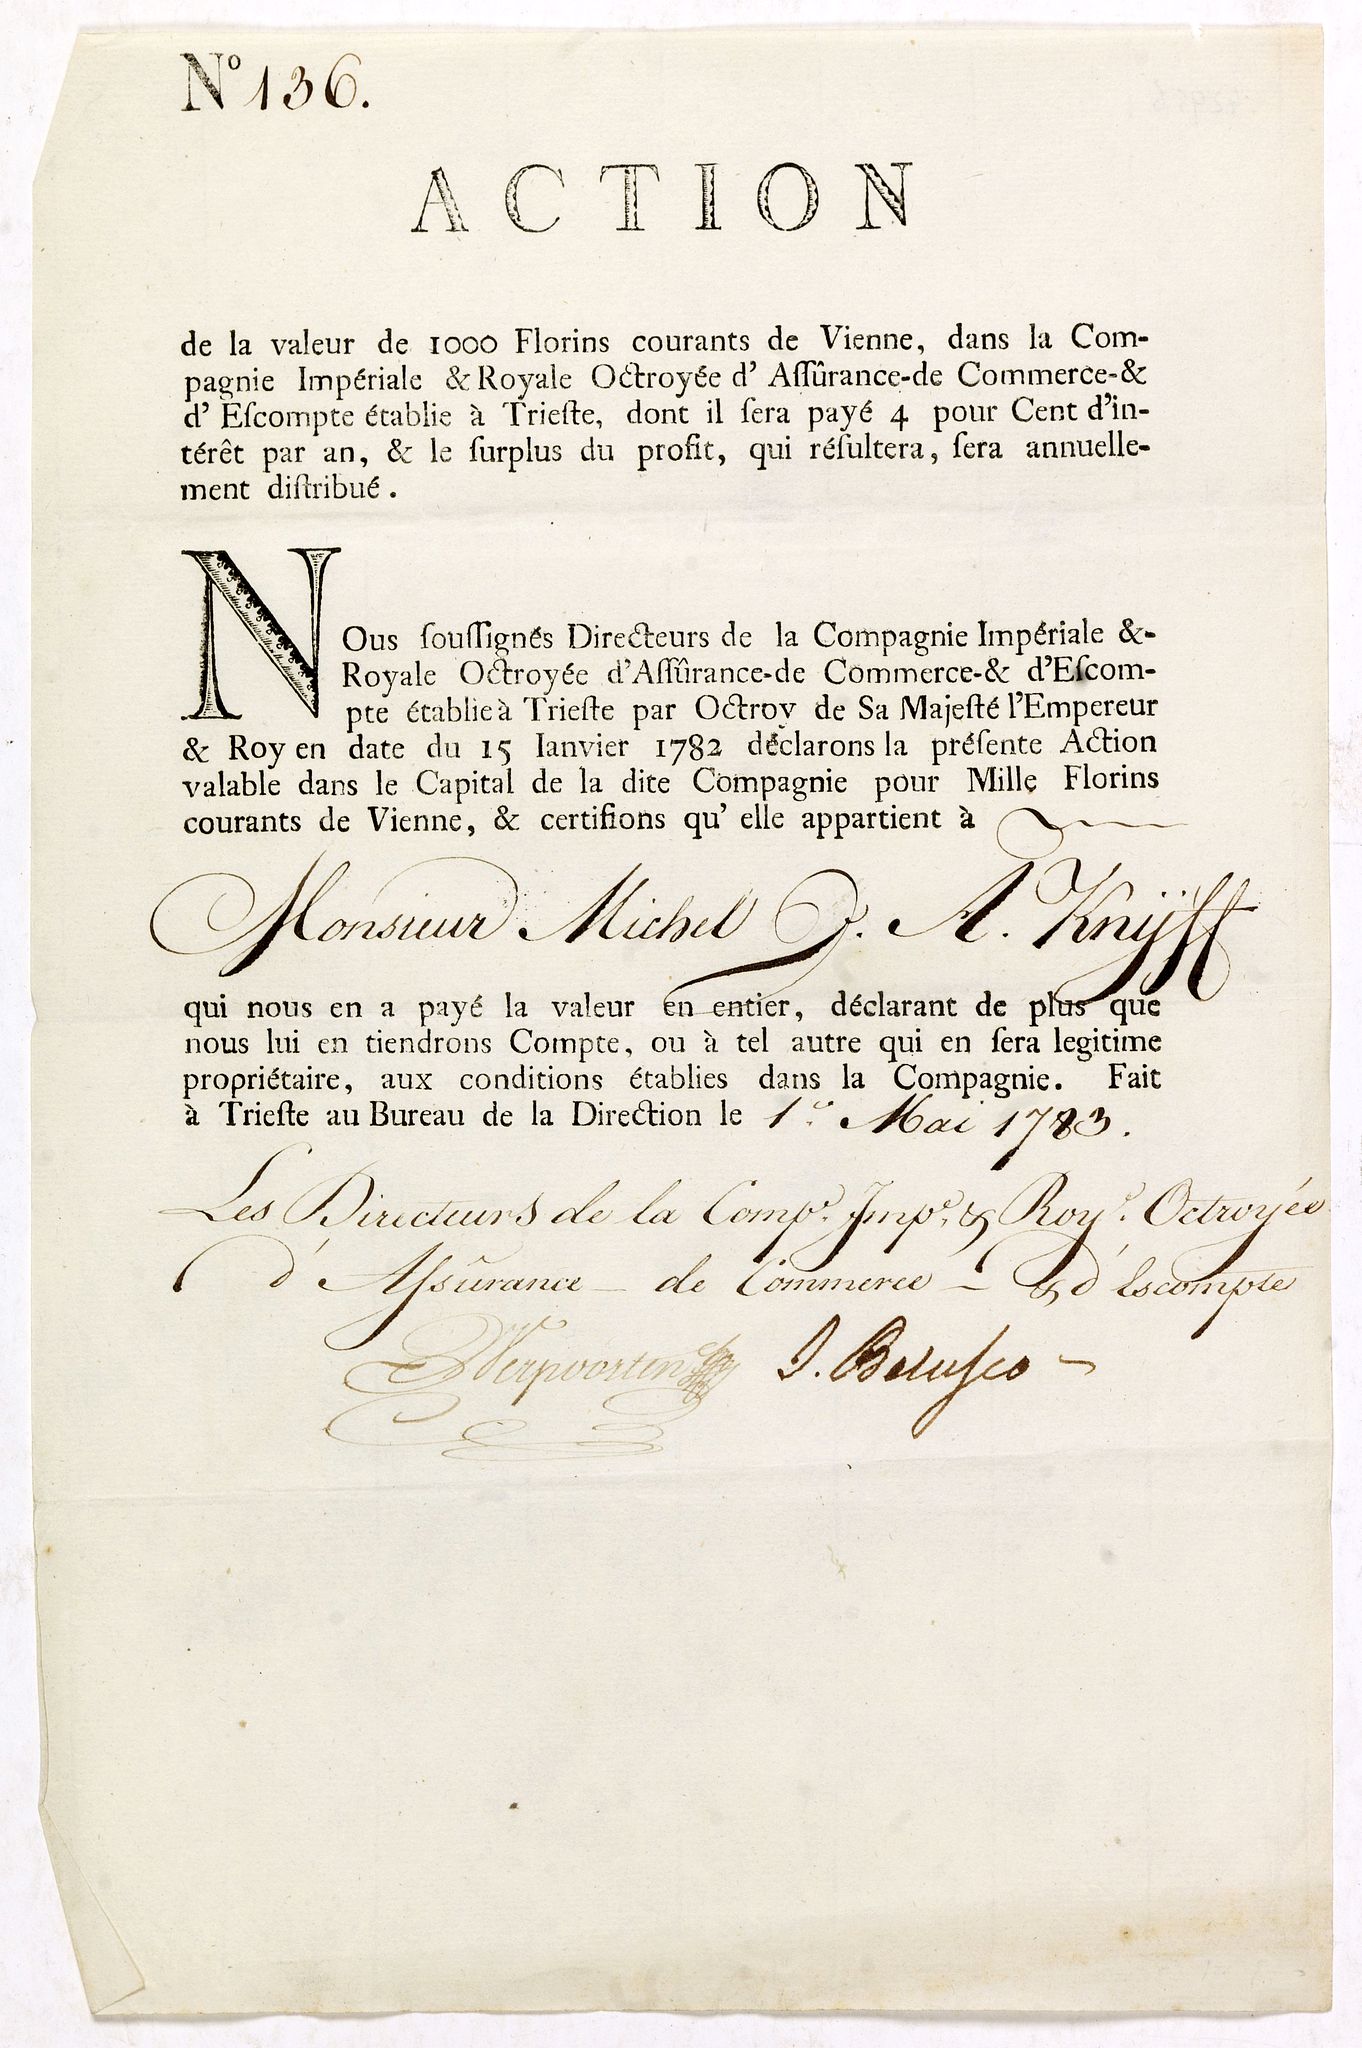 Nº 136.
ACTION
de la valeur de 1000 Florins courants de Vienne, dans la Com-
pagnie Impériale & Royale Octroyée d' Aſſûrance-de Commerce-&
d' Eſcompte établie à Trieſte, dont il ſera payé 4 pour Cent d'in-
térêt par an, & le ſurplus du profit, qui réſultera, ſera annuelle-
ment diſtribué.
NOus ſouſſignés Directeurs de la Compagnie Impériale &-
Royale Octroyée d'Aſſûrance-de Commerce-& d'Eſcom-
pte établie à Trieſte par Octroy de Sa Majeſté l'Empereur
& Roy en date du 15 Ianvier 1782 déclarons la préſente Action
valable dans le Capital de la dite Compagnie pour Mille Florins
courants de Vienne, & certifions qu' elle appartient à
Monsieur Michel J. A. Knÿff
qui nous en a payé la valeur en entier, déclarant de plus que
nous lui en tiendrons Compte, ou à tel autre qui en ſera legitime
propriétaire, aux conditions établies dans la Compagnie. Fait
à Trieſte au Bureau de la Direction le 1.º Mai 1783.
Les Directeurs de la Comp.e Imp.e & Roy.e Octroyée
d' Aſsûrance - de Commerce - & d' Escompte
Verpoorten J. Beluſco